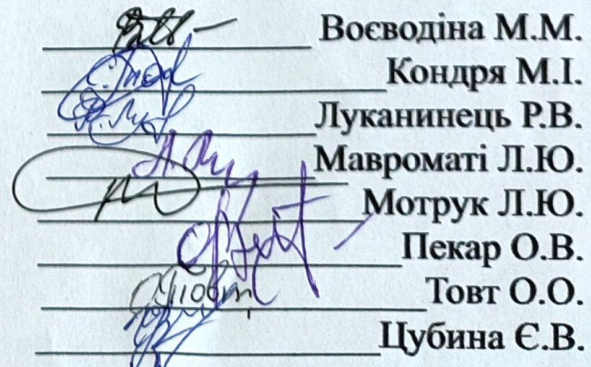 Воєводіна М.М.
Кондря М.І.
Луканинець Р.В.
Мавроматі Л.Ю.
Мотрук Л.Ю.
Пекар О.В.
Товт О.О.
Цубина Є.В.